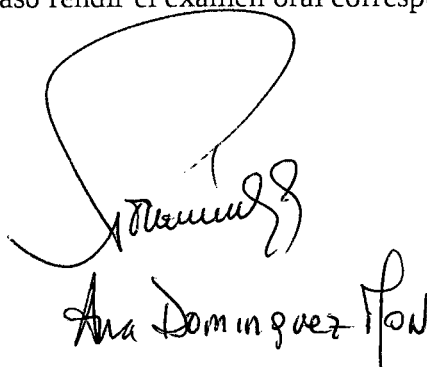 aso rendir el examen oral corresp
Ana Dominguez Mon